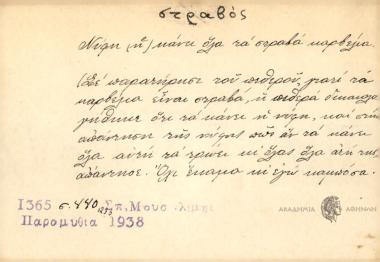 στραβός
Νύφη (ἡ) κάνει ὅλα τὰ στραβὰ καρβέλια.
(Σὲ παρατήρηση τοῦ πεθεροῦ, γιατί τὰ
καρβέλια εἶναι στραβά, ἡ πεθερὰ δικαιολο
γήθηκε ὅτι τὰ κάνει ἡ νύφη, καὶ στὴν
ἀπάντηση τῆς νύφης πὼς ἂν τὰ κάνει
ὅλα αὐτὴ τὰ τρώει κι ὅλας ὅλα αὐτὴ τῆς
ἀπάντησε. Ὄχι ἔκαμα κι ἐγὼ κάμποσα.
1365 σ. 440 Σπ. Μουσ
Παραμυθία 1938
ΑΚΑΔΗΜΙΑ ΑΘΗΝΩΝ